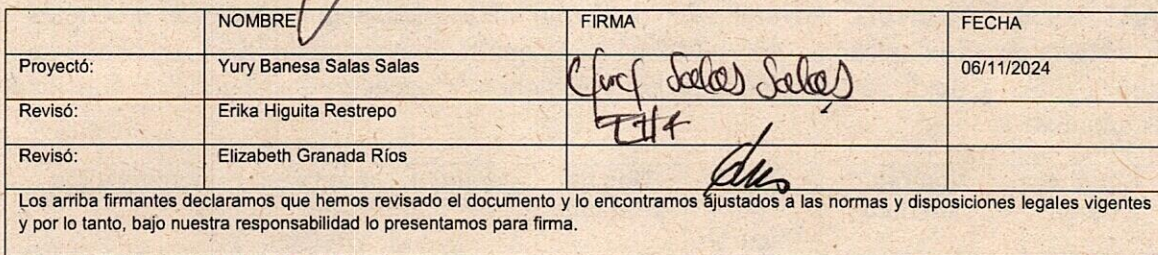 NOMBRE FIRMA FECHA
Proyectó: Yury Banesa Salas Salas Yury Salas Salas 06/11/2024
Revisó: Erika Higuita Restrepo
Revisó: Elizabeth Granada Ríos
Los arriba firmantes declaramos que hemos revisado el documento y lo encontramos ajustados a las normas y disposiciones legales vigentes
y por lo tanto, bajo nuestra responsabilidad lo presentamos para firma.